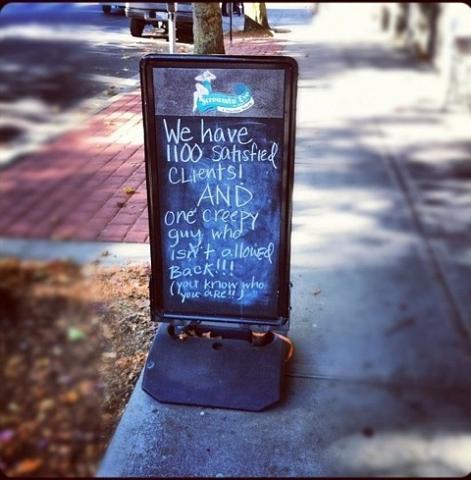 Serenity Eve
We have
1100 satisfied
CLients!
AND
one creepy
guy who
isn't allowed
BACK!!!
(you know who
you are!!)